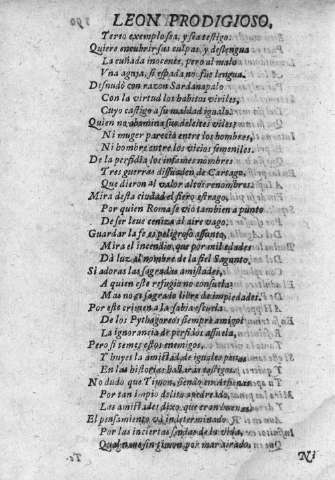 LEON PRODIGIOSO,
Terso exemplo sea, y sea testigo.
Quiere encubrir sus culpas, y deslengua
La cuñada inocente, pero al malo
Vna aguja, si espada no, fue lengua.
Desnudò con razon Sardanapalo
Con la virtud los habitos viriles,
Cuyo castigo a su maldad igualo.
Quien no abomina sus deleites viles,
Ni muger parecia entre los hombres,
Ni hombre entre los vicios femeniles.
De la perfidia los infames nombres
Tres guerras difunden de Cartago,
Que dieron al valor altos renombres.
Mira desta ciudad el fiero estrago,
Por quien Roma se vio tambien a punto
De ser leue ceniza al aire vago.
Guardar la fe es peligroso assunto,
Mira el incendio, que por mil edades
Dà luz al nombre de la fiel Sagunto,
Si adoras las sagradas amistades,
A quien este refugio no consuela
Mas no es sagrado libre de impiedades.
Por este crimen a la sabia escuela
De los Pythagoreos siempre amigos
La ignorancia de perfidos assuela,
Pero si temes estos enemigos,
Y huyes la amistad de iguales pechos,
En las historias hallaràs testigos.
No dudo que Timon, siendo en Atenas
Por tan impio delito
Las amistades dixo que eran buenas.
El pensamiento và indeterminado
Por las inciertas sendas de la vida,
Qual naue sin timon por mar airado.
Ni